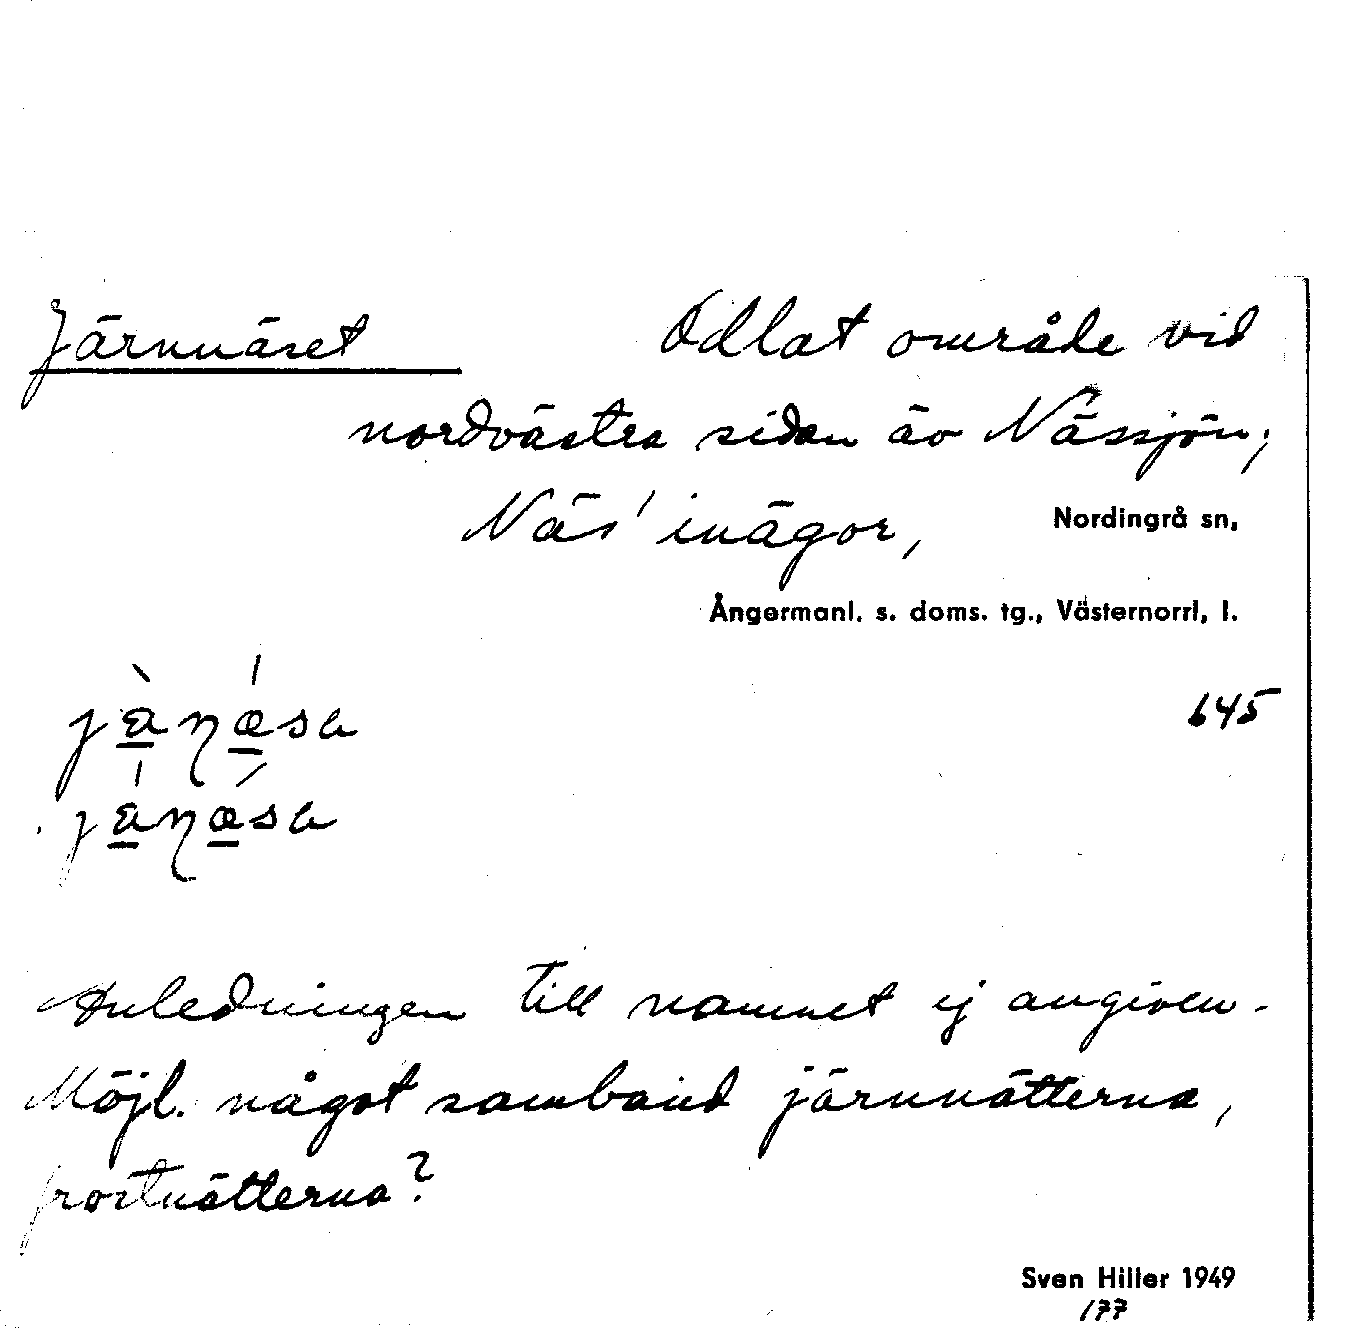 Järnnäset Odlat område vid
nordvästra sidan äv Nässjön;
Näs' inägor, Nordingrå sn,
Ångermanl. s. doms. tg., Västernorrl, l.
645
Anledningen till namnet ej angiven.
Möjl. något samband järnnätterna,
frostnätterna?
Sven Hiller 1949
177